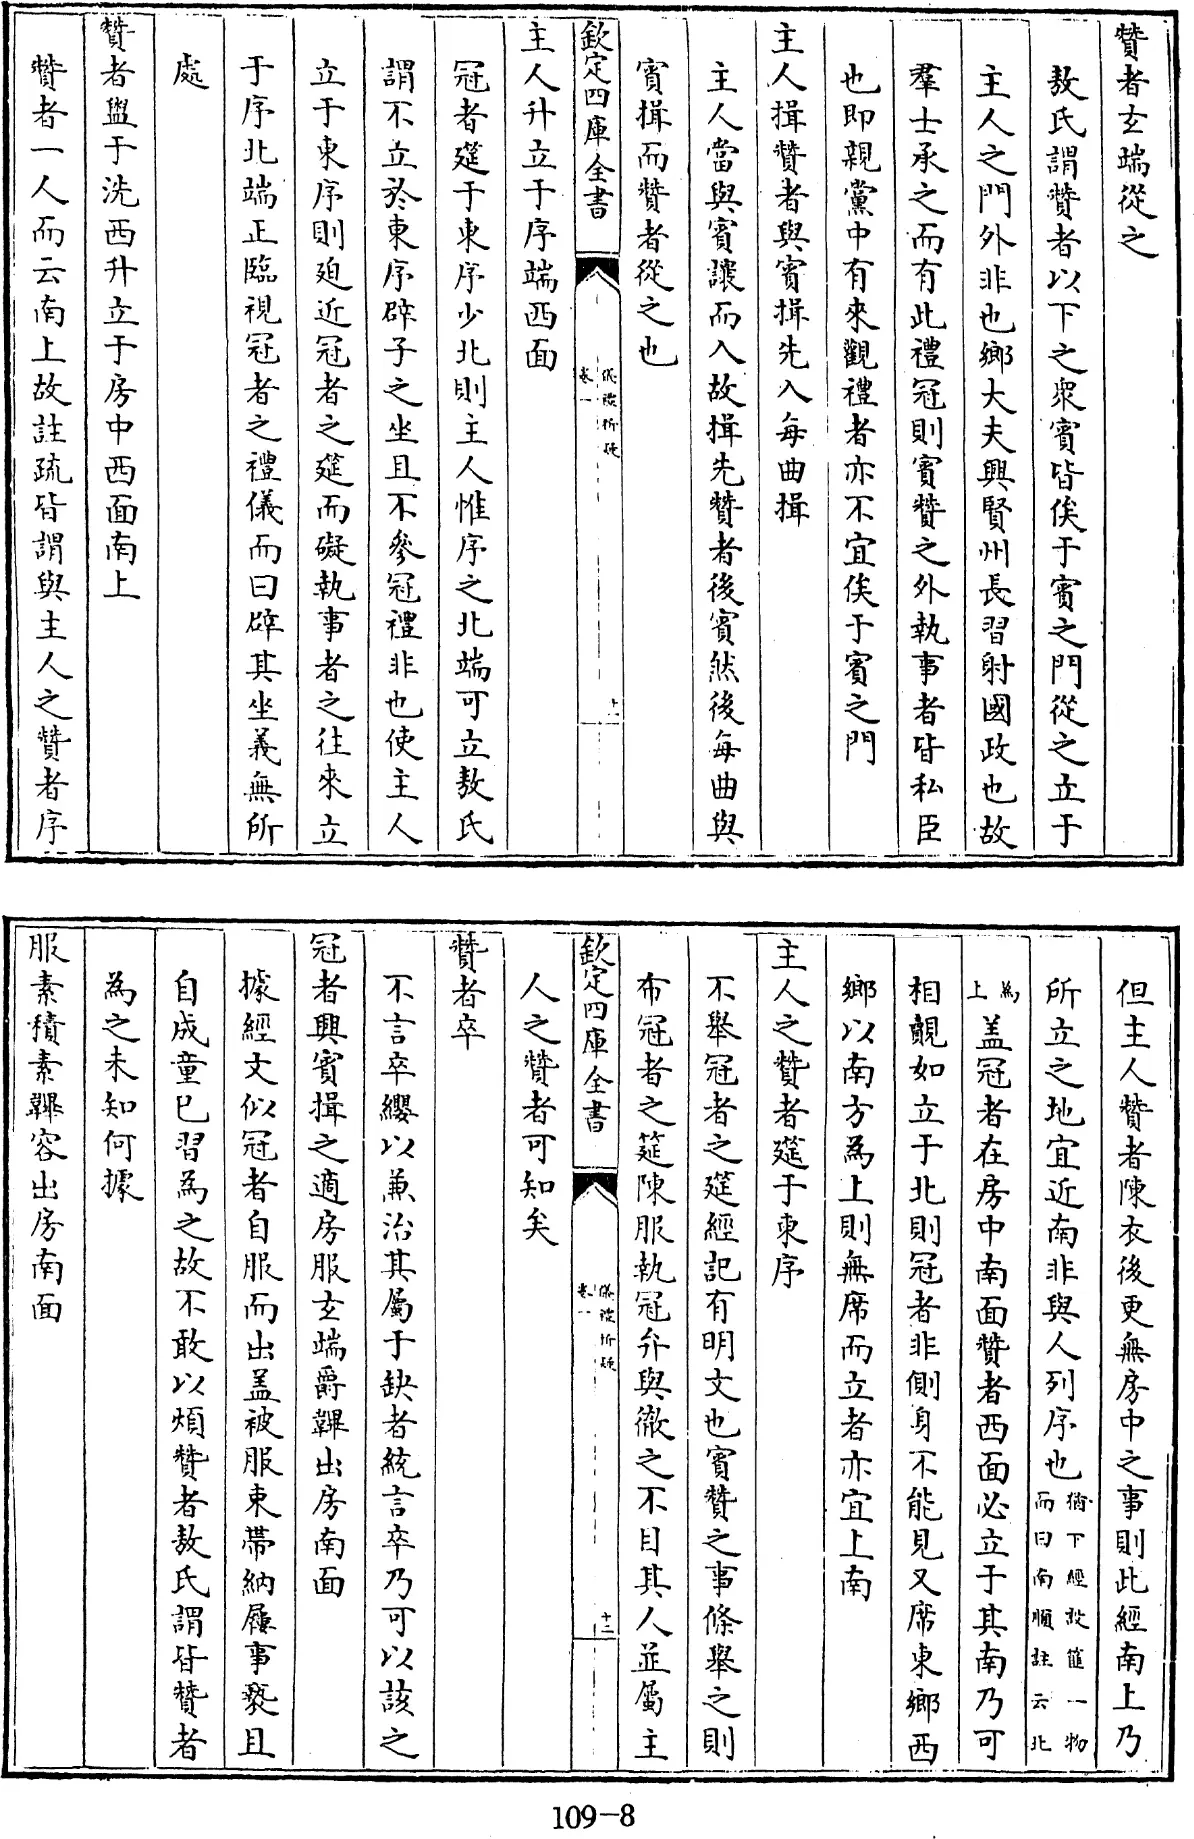 贊者玄端從之
敖氏謂贊者以下之衆賓皆俟于賓之門從之立于
主人之門外非也鄉大夫興賢州長習射國政也故
羣士承之而有此禮冠則賓贊之外執事者皆私臣
也即親黨中有來觀禮者亦不宜俟于賓之門
主人揖贊者與賓揖先入每曲揖
主人當與賓讓而入故揖先贊者後賓然後每曲與
賓揖而贊者從之也
欽定四庫全書
儀禮析疑
卷一
十二
主人升立于序端西面
冠者筵于東序少北則主人惟序之北端可立敖氏
謂不立於東序辟子之坐且不參冠禮非也使主人
立于東序則廹近冠者之筵而礙執事者之往來立
于序北端正臨視冠者之禮儀而曰辟其坐義無所
處
贊者盥于洗西升立于房中西面南上
贊者一人而云南上故註疏皆謂與主人之贊者序
但主人贊者陳衣後更無房中之事則此經南上乃
所立之地宜近南非與人列序也猶下經設篚一物
而曰南順註云北
為
上蓋冠者在房中南面贊者西面必立于其南乃可
相覿如立于北則冠者非側身不能見又席東鄉西
鄉以南方為上則無席而立者亦宜上南
主人之贊者筵于東序
不舉冠者之筵經記有明文也賓贊之事條舉之則
布冠者之筵陳服執冠弁與徹之不目其人並屬主
欽定四庫全書
儀禮析疑
卷一
十三
人之贊者可知矣
贊者卒
不言卒纓以兼治其屬于缺者統言卒乃可以該之
冠者興賓揖之適房服玄端爵韠出房南面
據經文似冠者自服而出蓋被服束帶納屨事褻且
自成童已習為之故不敢以煩贊者敖氏謂皆贊者
為之未知何據
服素積素韠容出房南面
109-8